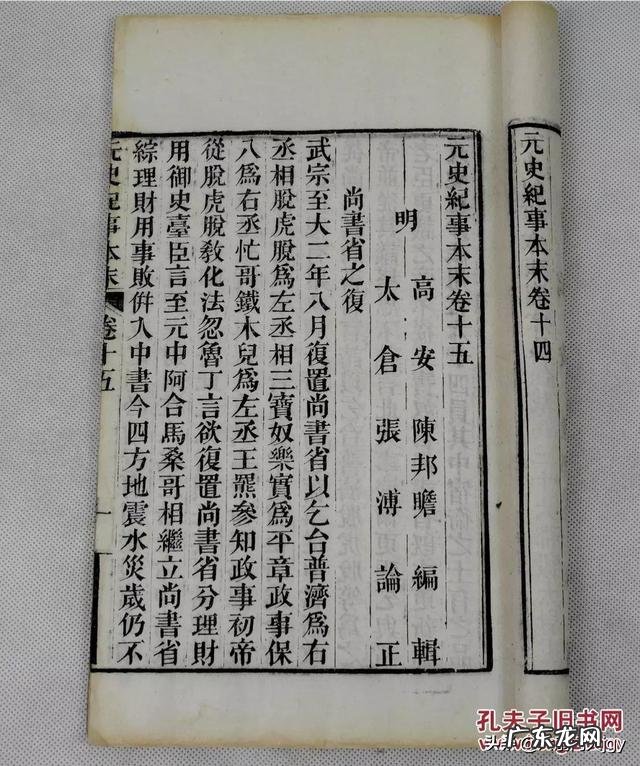 元史紀事本末卷十四
元史紀事本末卷十五
明
高安陳邦瞻編輯
太倉張溥論正
尚書省之復
武宗至大二年八月復置尚書省以乞台普濟為右
丞相脫虎脫為左丞相三寶奴樂實為平章政事保
八為右丞忙哥鐵木兒為左丞王羆參知政事初帝
從脫虎脫教化法忽魯丁言欲復置尚書省分理財
用御史臺臣言至元中阿合馬桑哥相繼立尚書省
綜理財用事敗併入中書今四方地震水災歲仍不
元史紀事本末 卷十五 一
孔夫子旧书网
头 广东龙网